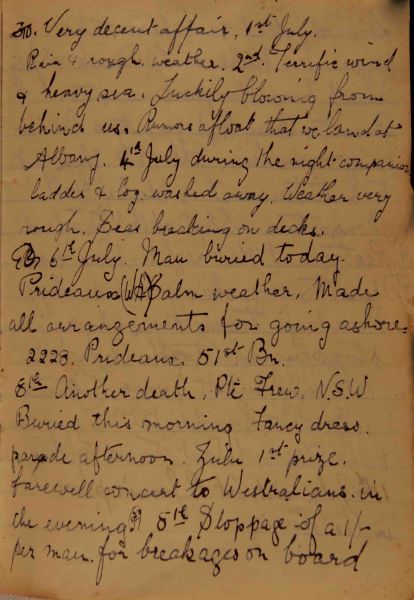 30. Very decent affair, 1st July.
Rain & rough. weather. 2nd. Terrific wind
& heavy sea. Luckily blowing from
behind us. Rumors afloat that we land at
Albany. 4th July during the night companion
ladder & log washed away. Weather very
rough. Seas breaking on decks.
6th July. Man buried today.
Prideaux (WA) Calm weather. Made
all arrangements for going ashore.
2228. Prideaux, 51st Bn.
8th Another death. Pte Frew. N.S.W
Buried this morning Fancy dress.
parade afternoon. Zulu 1st prize.
farewell concert to Westralians. in
the evening. 5th Stoppage of a 1/-
per man. for breakages on board